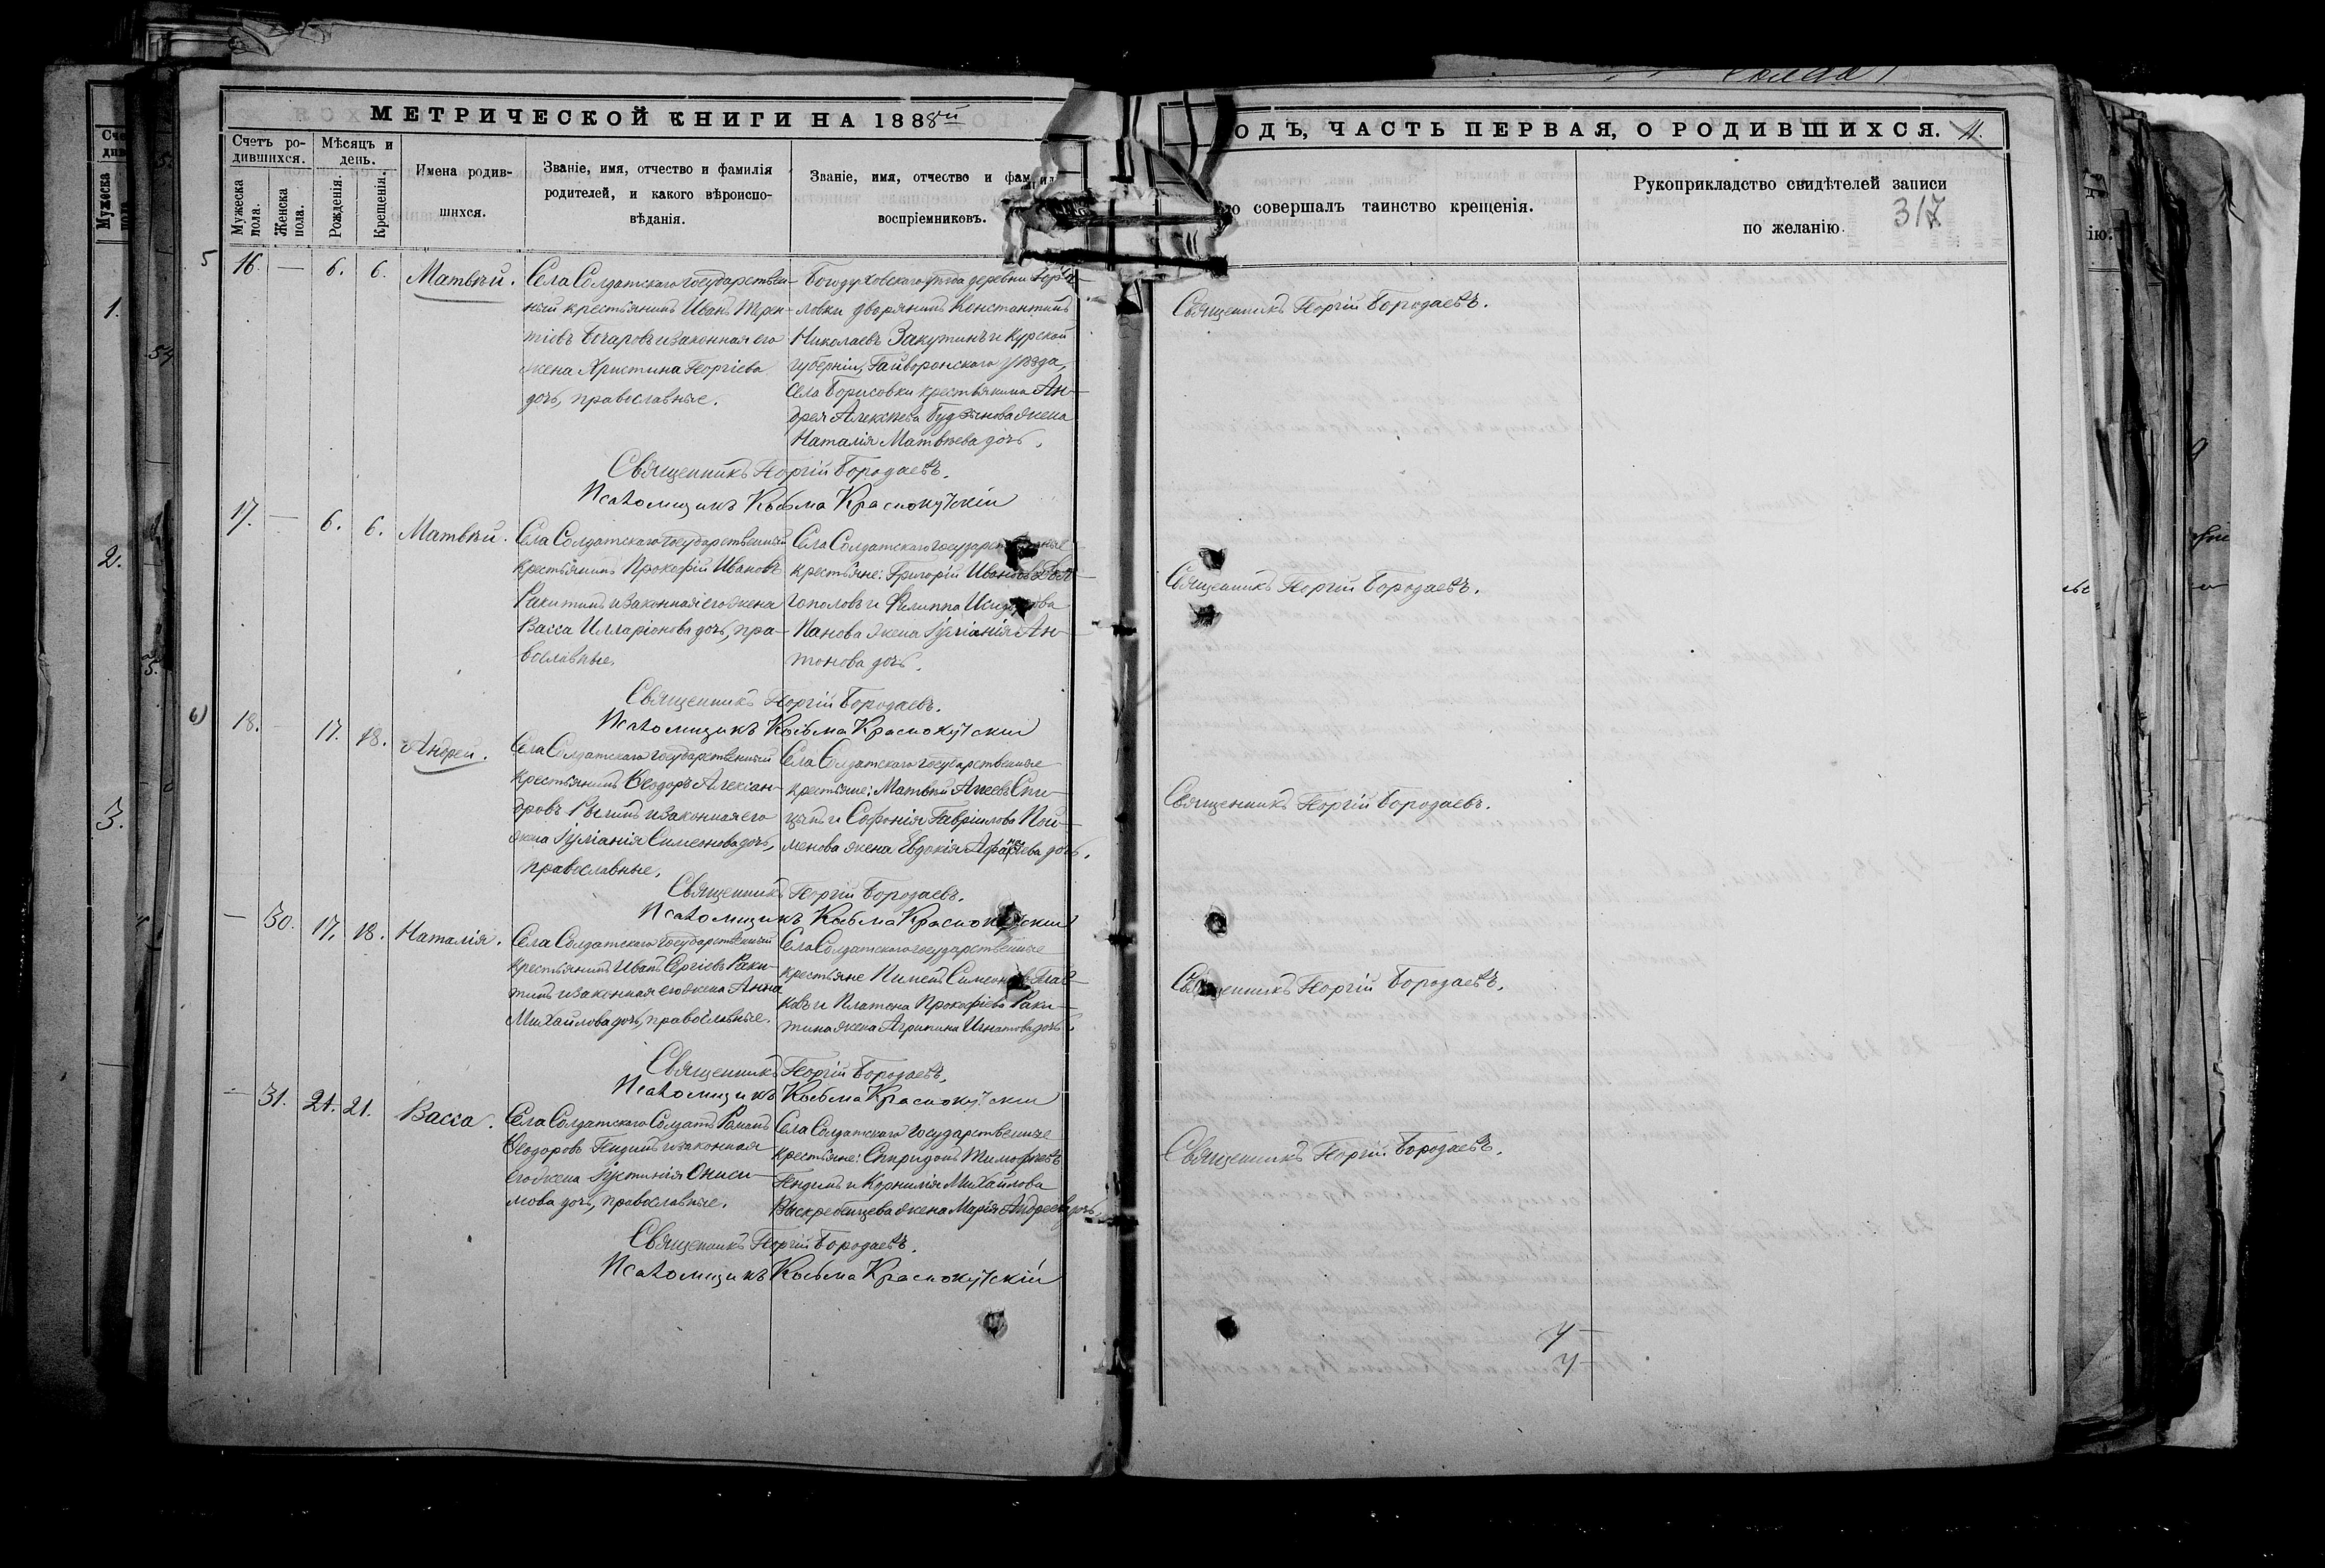 МЕТРИЧЕСКОЙ КНИГИ НА 1888й
Счетъ ро-
дившихся.
Мужеска
пола.
Женска
пола.
Мѣсяцъ и
день.
Рожденія.
Крещенія.
Имена родив-
шихся.
Званіе, имя, отчество и фамилія
родителей, и какого вѣроиспо-
вѣданія.
Званіе, имя, отчество и
воспріемниковъ.
5
16. — 6. 6. Матвѣй.
Села Солдатскаго государствен-
ный крестьянинъ Иванъ Терен-
тіевъ Бочаровъ и законная его
жена Христина Георгіева
дочь, православные.
Богодуховскаго уѣзда деревни
ловки дворянинъ Константинъ
Николаевъ Закутинъ и Курской
губерніи, Гайворонскаго уѣзда,
села Борисовки крестьянина Ан-
дрея Алексѣева жена
Наталія Матвѣева дочь.
Священникъ Георгій Бородаевъ.
Псаломщикъ Козьма Краснокутскій
17. — 6. 6. Матвѣй.
Села Солдатскаго государственный
крестьянинъ Прокофій Ивановъ
Ракитинъ и законная его жена
Васса Илларіонова дочь, пра-
вославные.
Села Солдатскаго
крестьяне: Григорій Ивановъ
и Филиппа
Панова жена Іуліанія Ан-
тонова дочь.
Священникъ Георгій Бородаевъ.
Псаломщикъ Козьма Краснокутскій
6)
18. — 17. 18. Андрей.
Села Солдатскаго государственный
крестьянинъ Ѳеодоръ Алексан-
дровъ и законная его
жена Іуліанія Симеонова дочь,
православные.
Села Солдатскаго государственные
крестьяне: Матвѣй Спи-
цынъ и Софонія Гавріилова Пой-
менова жена Евдокія дочь.
Священникъ Георгій Бородаевъ.
Псаломщикъ Козьма Краснокутскій
— 30. 17. 18. Наталія.
Села Солдатскаго государственный
крестьянинъ Иванъ Сергіевъ Раки-
тинъ и законная его жена Анна
Михайлова дочь, православные.
Села Солдатскаго государственные
крестьяне Пименъ
и Платона Прокофіева Раки-
тина жена Агрипина Игнатова дочь.
Священникъ Георгій Бородаевъ.
Псаломщикъ Козьма Краснокутскій
— 31. 21. 21. Васса.
Села Солдатскаго Солдатъ Романъ
Ѳеодоровъ Гендинъ и законная
его жена Іустинія Ониси-
мова дочь, православные.
Села Солдатскаго государственные
крестьяне: Спиридонъ Тимофѣевъ
Гендинъ и Корнилія Михайлова
жена Марія Андреева дочь.
Священникъ Георгій Бородаевъ.
Псаломщикъ Козьма Краснокутскій
ОДЪ, ЧАСТЬ ПЕРВАЯ, О РОДИВШИХСЯ.
совершалъ таинство крещенія.
Рукоприкладство свидѣтелей записи
по желанію.
317
Священникъ Георгій Бородаевъ.
Священникъ Георгій Бородаевъ.
Священникъ Георгій Бородаевъ.
Священникъ Георгій Бородаевъ.
Священникъ Георгій Бородаевъ.